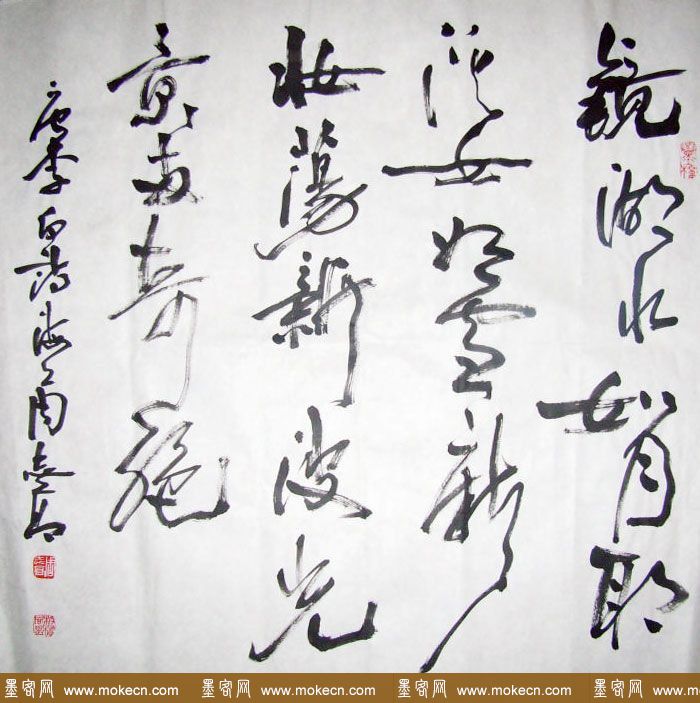 鏡湖水如月耶
溪女如雪新
妝蕩新波光
景兩奇絕
唐李白詩海
墨客网 www.mokecn.com 墨客网 www.mokecn.com 墨客网 www.mokecn.com 墨客网 www.mokecn.com